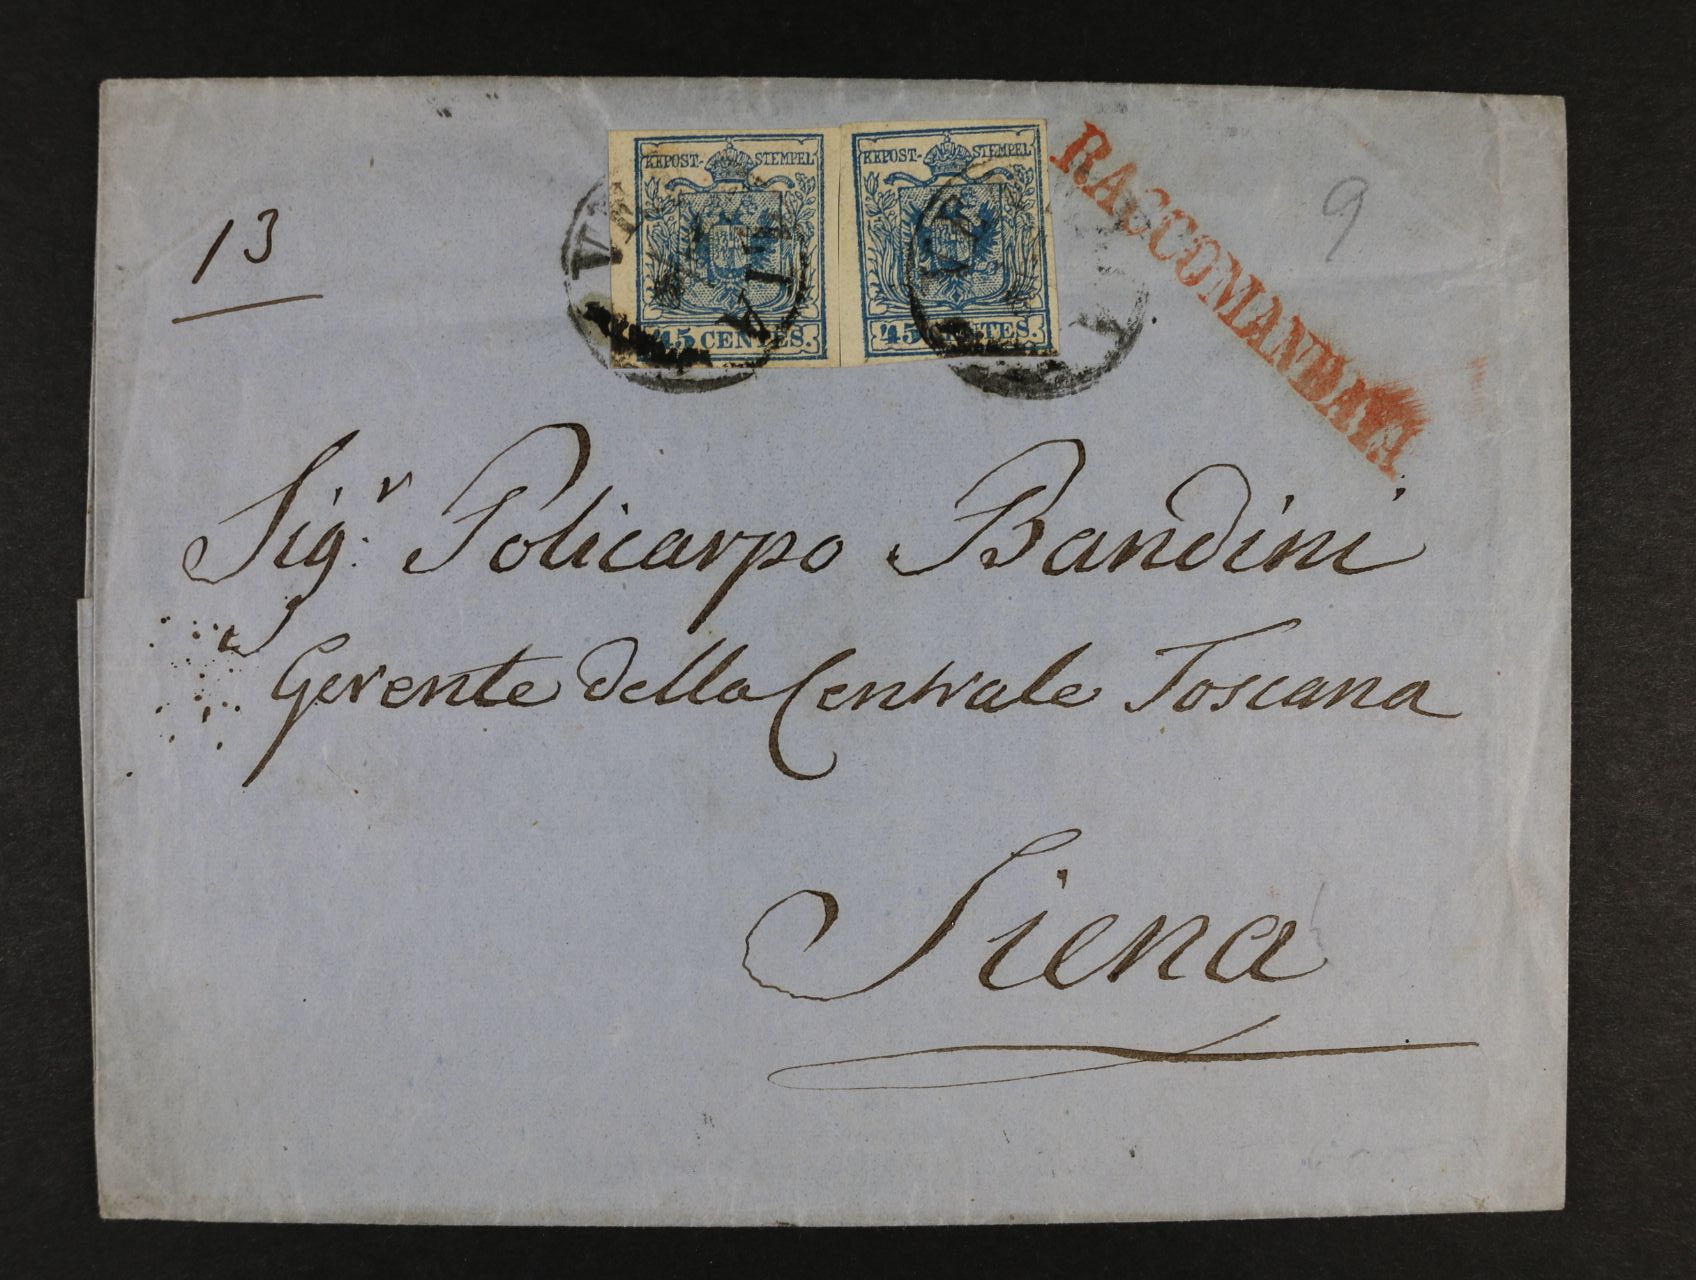 KKPOST-STEMPEL
45 CENTES.
KKPOST-STEMPEL
45 CENTES.
RACCOMANDATA
13
9
Sig.r Policarpo Bandini
Gerente della Centrale Toscana
Siena